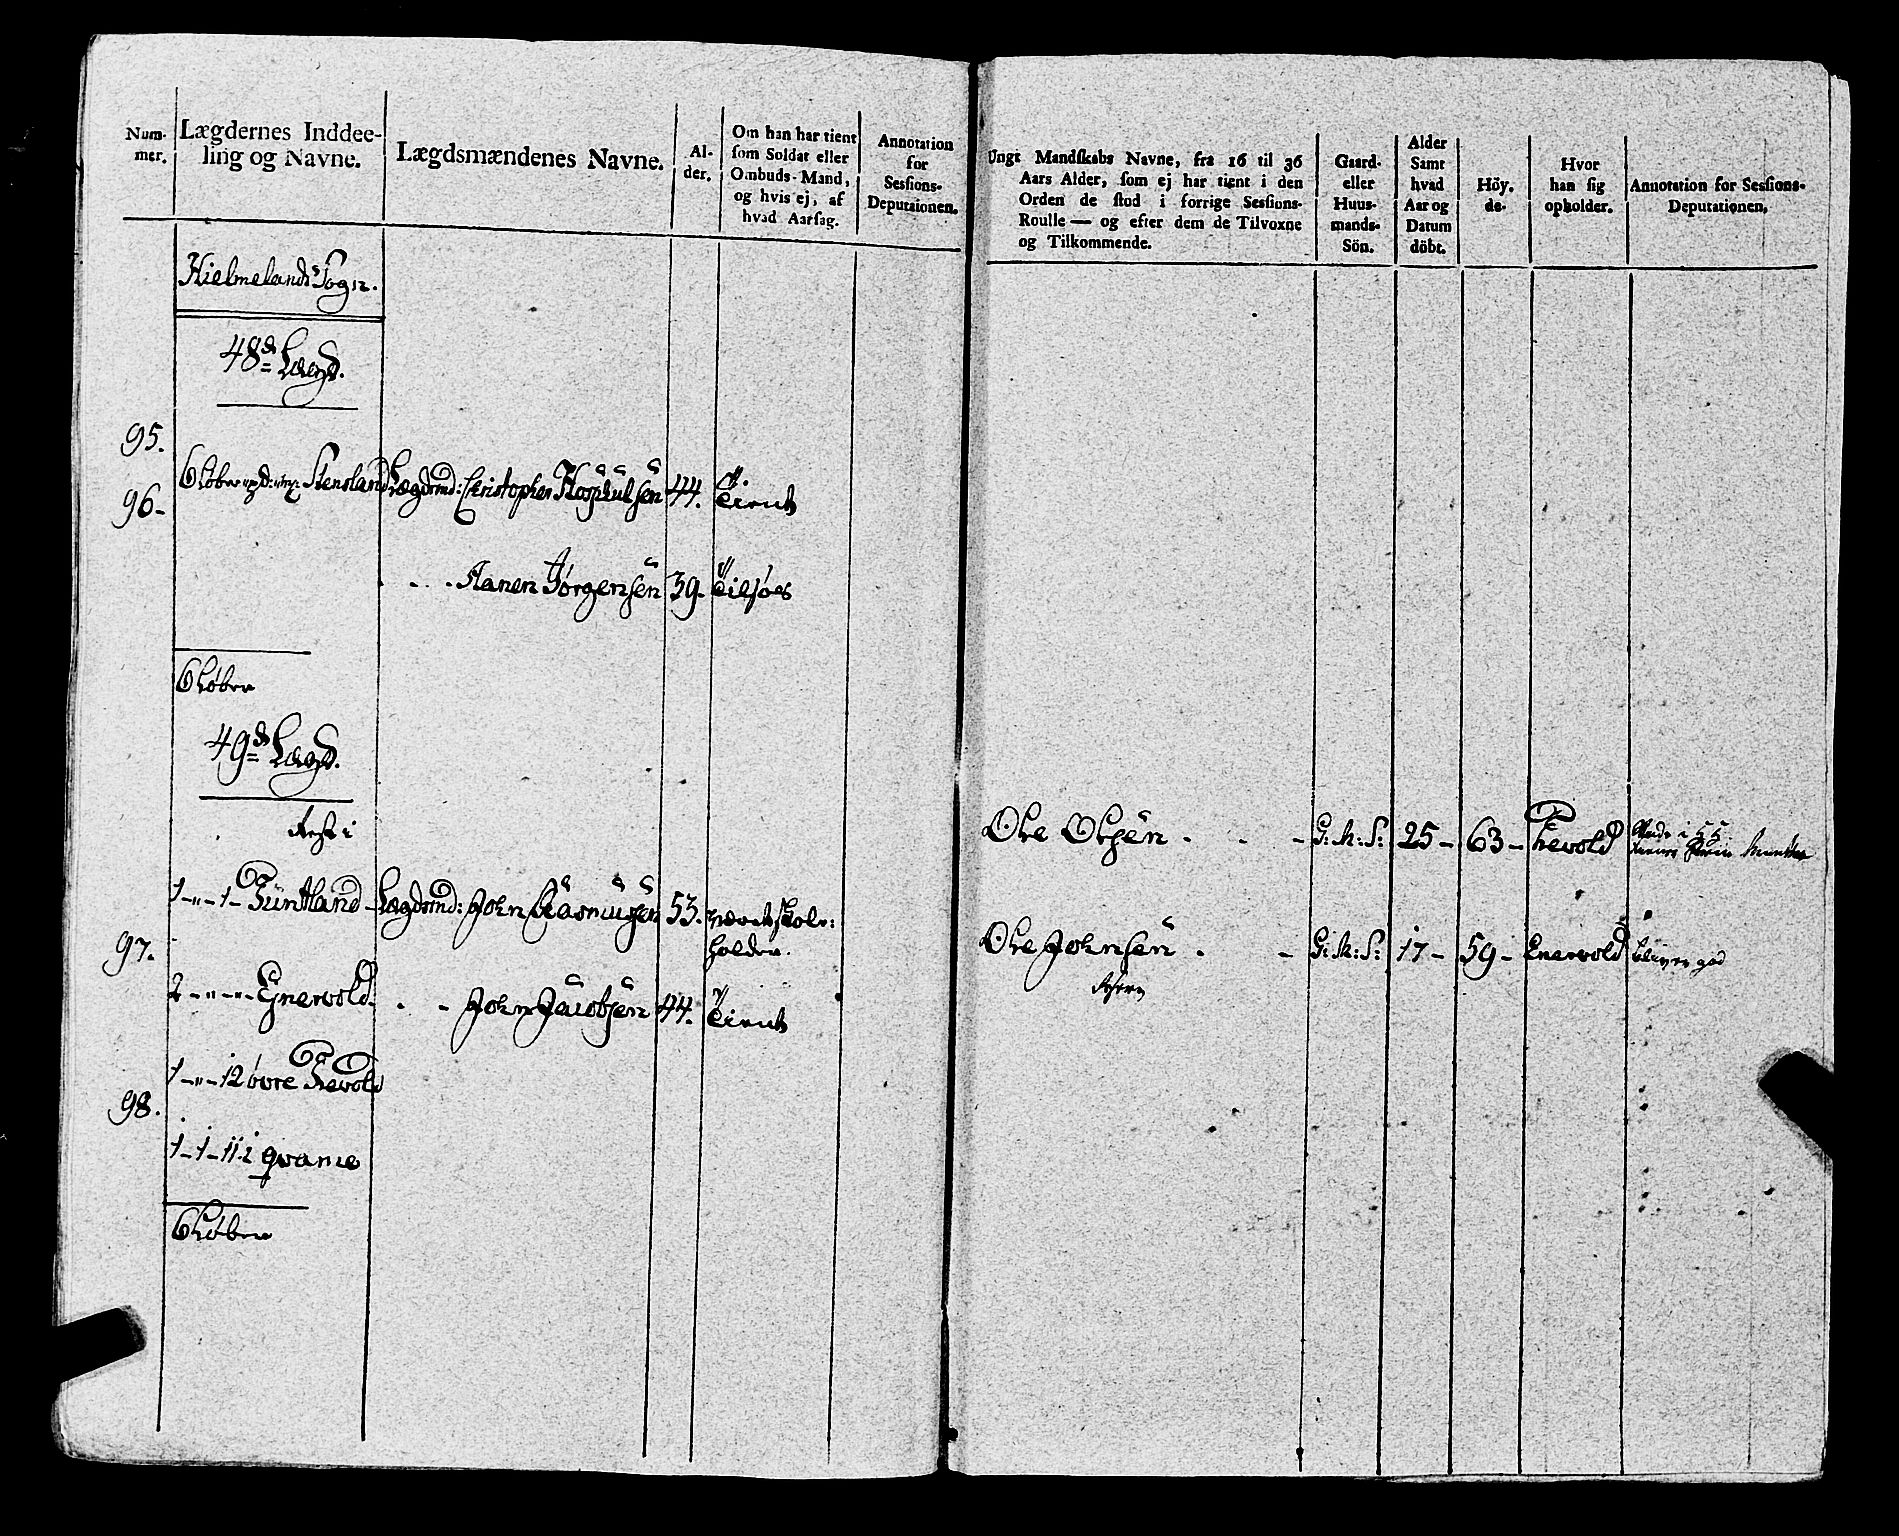 Num-
mer.
Lægdernes Inddee-
ling og Navne.
Lægdsmændenes Navne.
Al-
der.
Om han har tient
som Soldat eller
Ombuds-Mand,
og hvis ej, af
hvad Aarsag.
Annotation
for
Sessions-
Deputaionen.
Hielmelands Sogn.
48de Lægd.
95.
96-
6 Løber Stensland
Lægdsmd: Christopher 44. Tient
Aanen Jørgensen 39- Tilsøes
6 Løber
49de Lægd.
1-"-1- Lægdsmd: John Rasmussen 53. været skole:
holder.
97.
2-"-"- Enervold- John Jacobsen 44. Tient
1-"-12 øvre Tievold
98.
1-1-11 i qvame
6 Løber
Ungt Mandskabs Navne, fra 16 til 36
Aars Alder, som ej har tient i den
Orden de stod i forrige Sessions-
Roulle — og efter dem de Tilvoxne
og Tilkommende.
Gaard-
eller
Huus-
mands-
Sön.
Alder
Samt
hvad
Aar og
Datum
döbt.
Höy-
de.
Hvor
han sig
opholder.
Annotation for Sessions-
Deputationen.
Ole Olsen - - G: M: S: 25- 63- Tievold
Ole Johnsen - - G: M: S: 17- 59- Enervold bliver god